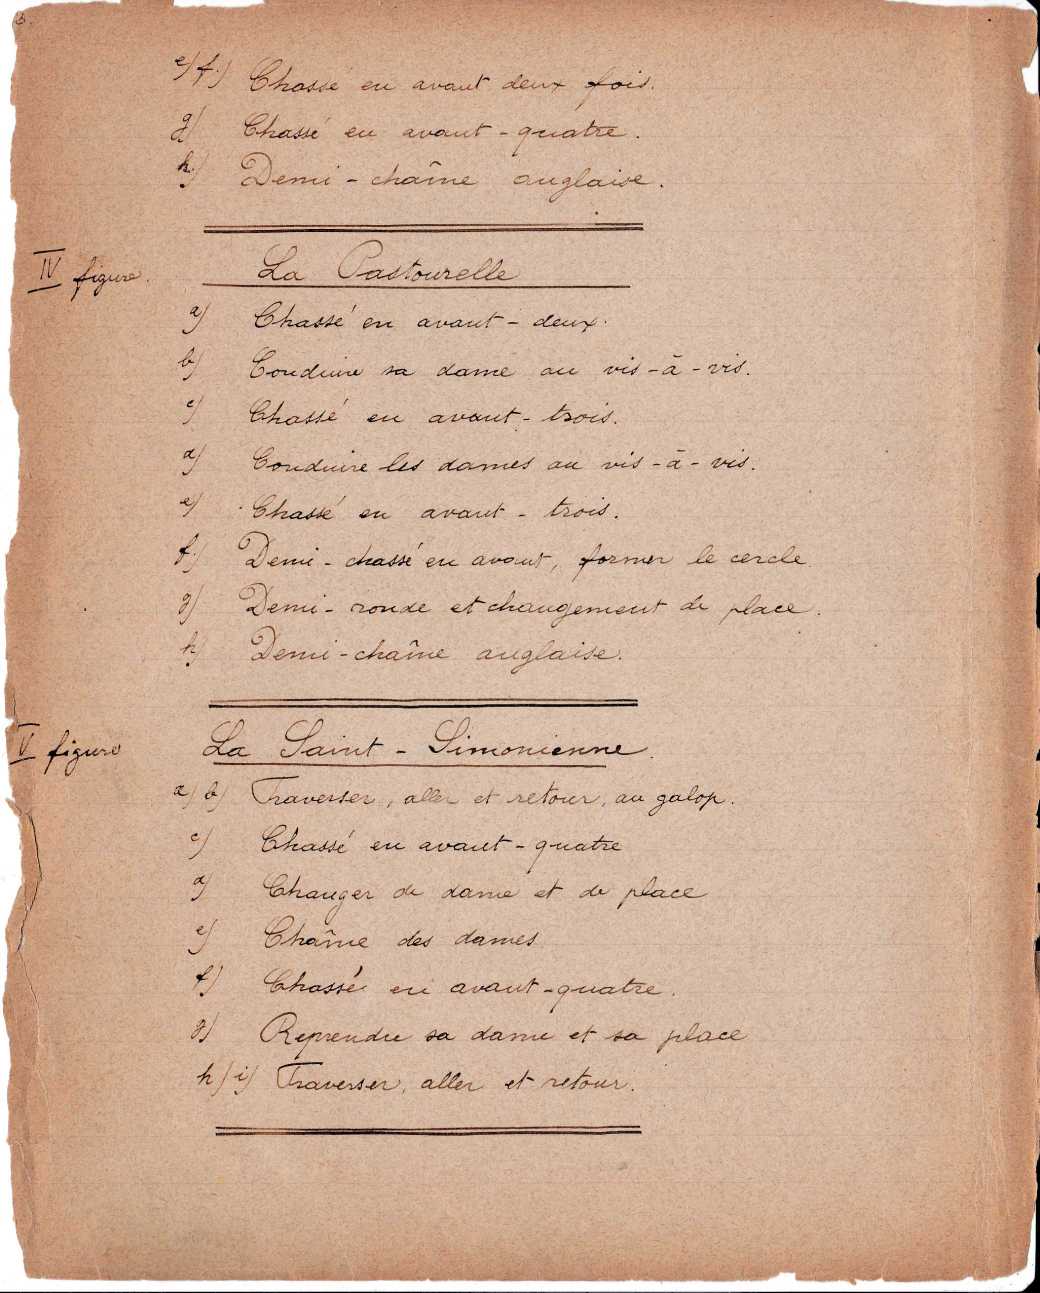 3.
e) f.) Chassé en avant deux fois.
g) Chassé en avant - quatre.
h.) Demi - chaîne anglaise.
IV figure. La Pastourelle
a) Chassé en avant - deux.
b) Conduire sa dame au vis - à - vis.
c) Chassé en avant - trois.
d) Conduire les dames au vis - à - vis.
e) Chassé en avant - trois.
f.) Demi - chassé en avant, former le cercle
g) Demi - ronde et changement de place.
h) Demi - chaîne anglaise.
V figure La Saint - Simonienne.
a) b) Traverser, aller et retour, au galop.
c) Chassé en avant - quatre
d) Changer de dame et de place
e) Chaîne des dames
f) Chassé en avant - quatre.
g) Reprendre sa dame et sa place
h) i) Traverser, aller et retour.